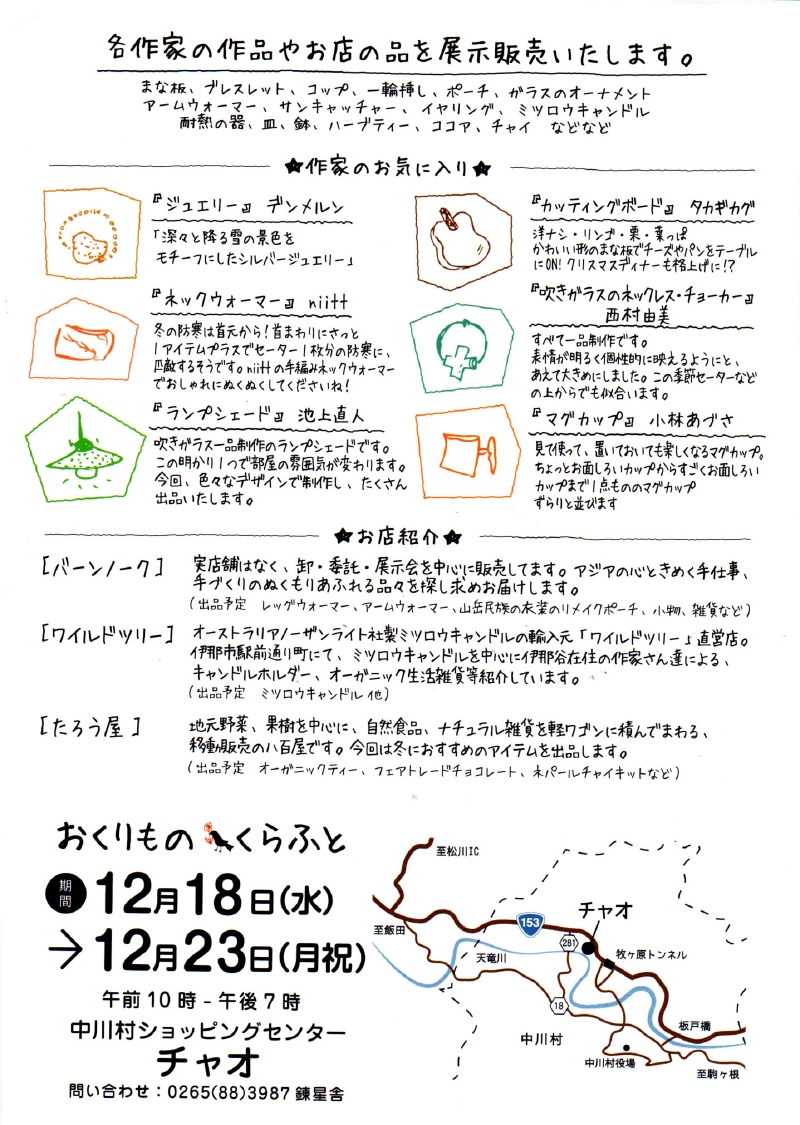 各作家の作品やお店の品を展示販売いたします。
まな板、ブレスレット、コップ、一輪挿し、ポーチ、ガラスのオーナメント
アームウォーマー、サンキャッチャー、イヤリング、ミツロウキャンドル
耐熱の器、皿、鉢、ハーブティー、ココア、チャイ などなど
★作家のお気に入り★
『ジュエリー』 デンメルン
「深々と降る雪の景色を
モチーフにしたシルバージュエリー」
『ネックウォーマー』 niitt
冬の防寒は首元から!首まわりにさっと
1アイテムプラスでセーター1枚分の防寒に、
匹敵するそうです。niittの手編みネックウォーマー
でおしゃれにぬくぬくしてくださいね!
『ランプシェード』 池上直人
吹きガラス一品制作のランプシェードです。
この明かり1つで部屋の雰囲気が変わります。
今回、色々なデザインで制作し、たくさん
出品いたします。
『カッティングボード』 タカギカグ
洋ナシ・リンゴ・栗・葉っぱ
かわいい形のまな板でチーズやパンをテーブル
にON!クリスマスディナーも格上げに!?
『吹きガラスのネックレス・チョーカー』
西村由美
すべて一品制作です。
表情が明るく個性的に映えるようにと、
あえて大きめにしました。この季節セーターなど
の上からでも似合います。
『マグカップ』 小林あづさ
見て使って、置いておいても楽しくなるマグカップ。
ちょっとお面しろいカップからすごくお面しろい
カップまで1点もののマグカップ
ずらりと並びます
★お店紹介★
[バーンノーク]
実店舗はなく、卸・委託・展示会を中心に販売してます。アジアの心ときめく手仕事、
手づくりのぬくもりあふれる品々を探し求めお届けします。
(出品予定 レッグウォーマー、アームウォーマー、山岳民族の衣装のリメイクポーチ、小物、雑貨など)
[ワイルドツリー]
オーストラリアノーザンライト社製ミツロウキャンドルの輸入元「ワイルドツリー」直営店。
伊那市駅前通り町にて、ミツロウキャンドルを中心に伊那谷在住の作家さん達による、
キャンドルホルダー、オーガニック生活雑貨等紹介しています。
(出品予定 ミツロウキャンドル 他)
[たろう屋]
地元野菜、果樹を中心に、自然食品、ナチュラル雑貨を軽ワゴンに積んでまわる、
移動販売の八百屋です。今回は冬におすすめのアイテムを出品します。
(出品予定 オーガニックティー、フェアトレードチョコレート、ネパールチャイキットなど)
おくりもの くらふと
期間
12月18日(水)
→12月23日(月祝)
午前10時-午後7時
中川村ショッピングセンター
チャオ
問い合わせ:0265(88)3987 錬星舎
至松川IC
チャオ
153
至飯田
281
天竜川
牧ヶ原トンネル
18
中川村
板戸橋
中川村役場
至駒ヶ根